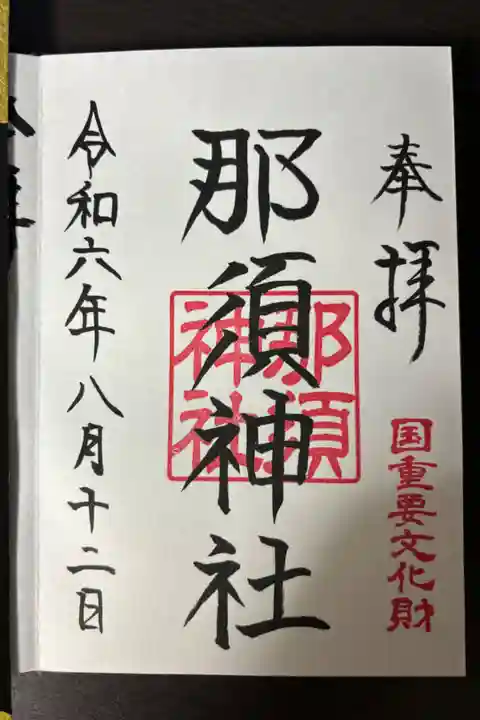 奉拝
国重要文化財
那須神社
那須
神社
令和六年八月十二日